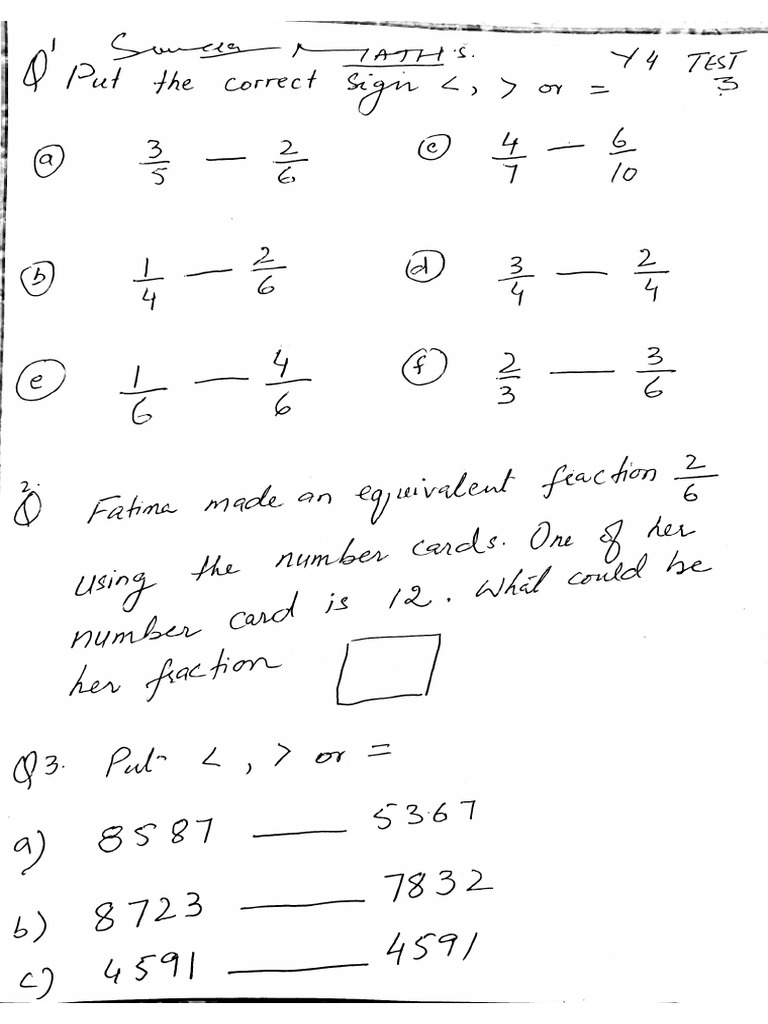 MATHS. Y4 TEST 3
Q1 Put the correct sign <, > or =
(a) 3/5 — 2/6 (c) 4/7 — 6/10
(b) 1/4 — 2/6 (d) 3/4 — 2/4
(e) 1/6 — 4/6 (f) 2/3 — 3/6
Q2. Fatima made an equivalent fraction 2/6
using the number cards. One of her
number card is 12. What could be
her fraction
Q3. Put < , > or =
a) 8587 — 5367
b) 8723 — 7832
c) 4591 — 4591